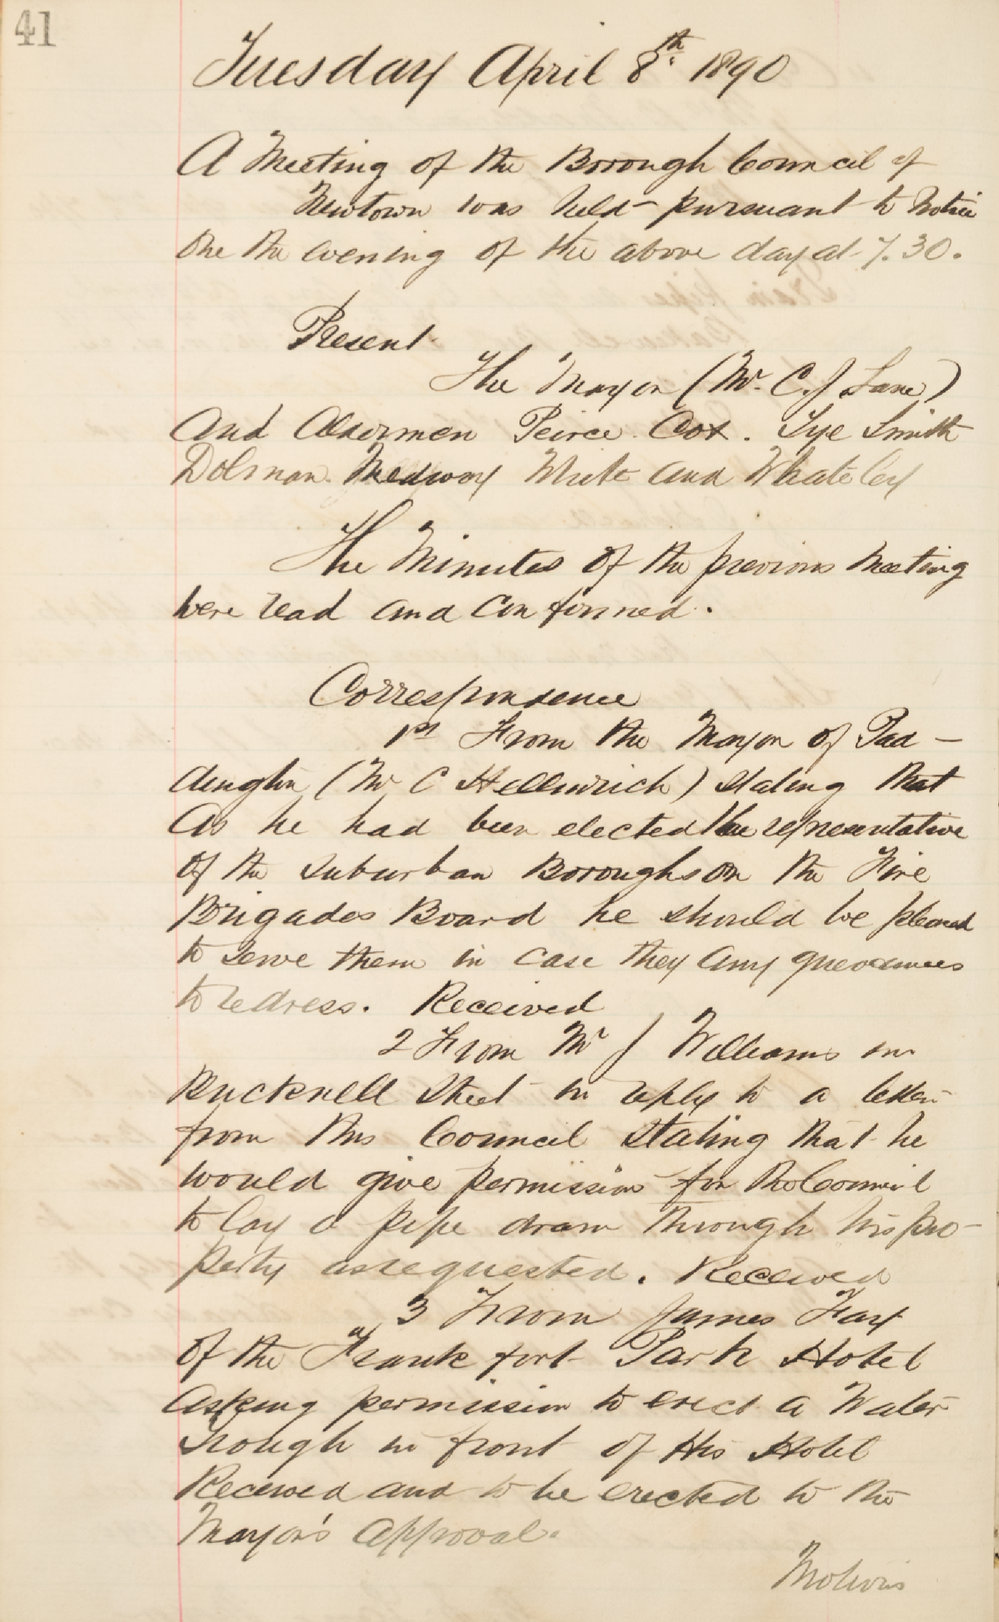 41
Tuesday April 8th 1890
A Meeting of the Borough Council of
Newtown was held pursuant to Notice
One the evening of the above day at 7.30.
Present
The Mayor (Mr. C. J Lane)
and Aldermen Peirce. Cox. Tye Smith
Dolman. Medway White and Whateley
The Minutes of the previous Meeting
were read and Confirmed.
Correspondence
1st From the Mayor of Pad-
dington (Mr C Hellmrich) Stating that
As he had been elected the representative
of the Suburban Boroughs on the Fire
Brigades Board he should be pleased
to serve them in case they any grievances
to redress. Received
2 From Mr J Williams in
Bucknell Street in reply to a letter
from this Council Stating that he
would give permission for the Council
to lay a pipe drain through his pro-
perty as requested. Received
3 From James Fay
of the "Frankfort Park Hotel
asking permission to erect a Water
Trough in front of His Hotel
Received and to be erected to the
Mayor's approval.
Motions